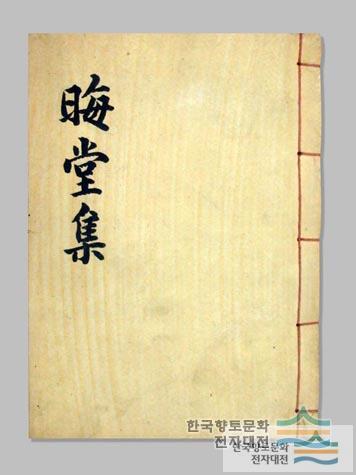 晦堂集
한국향토문화
전자대전
한국향토문화
전자대전